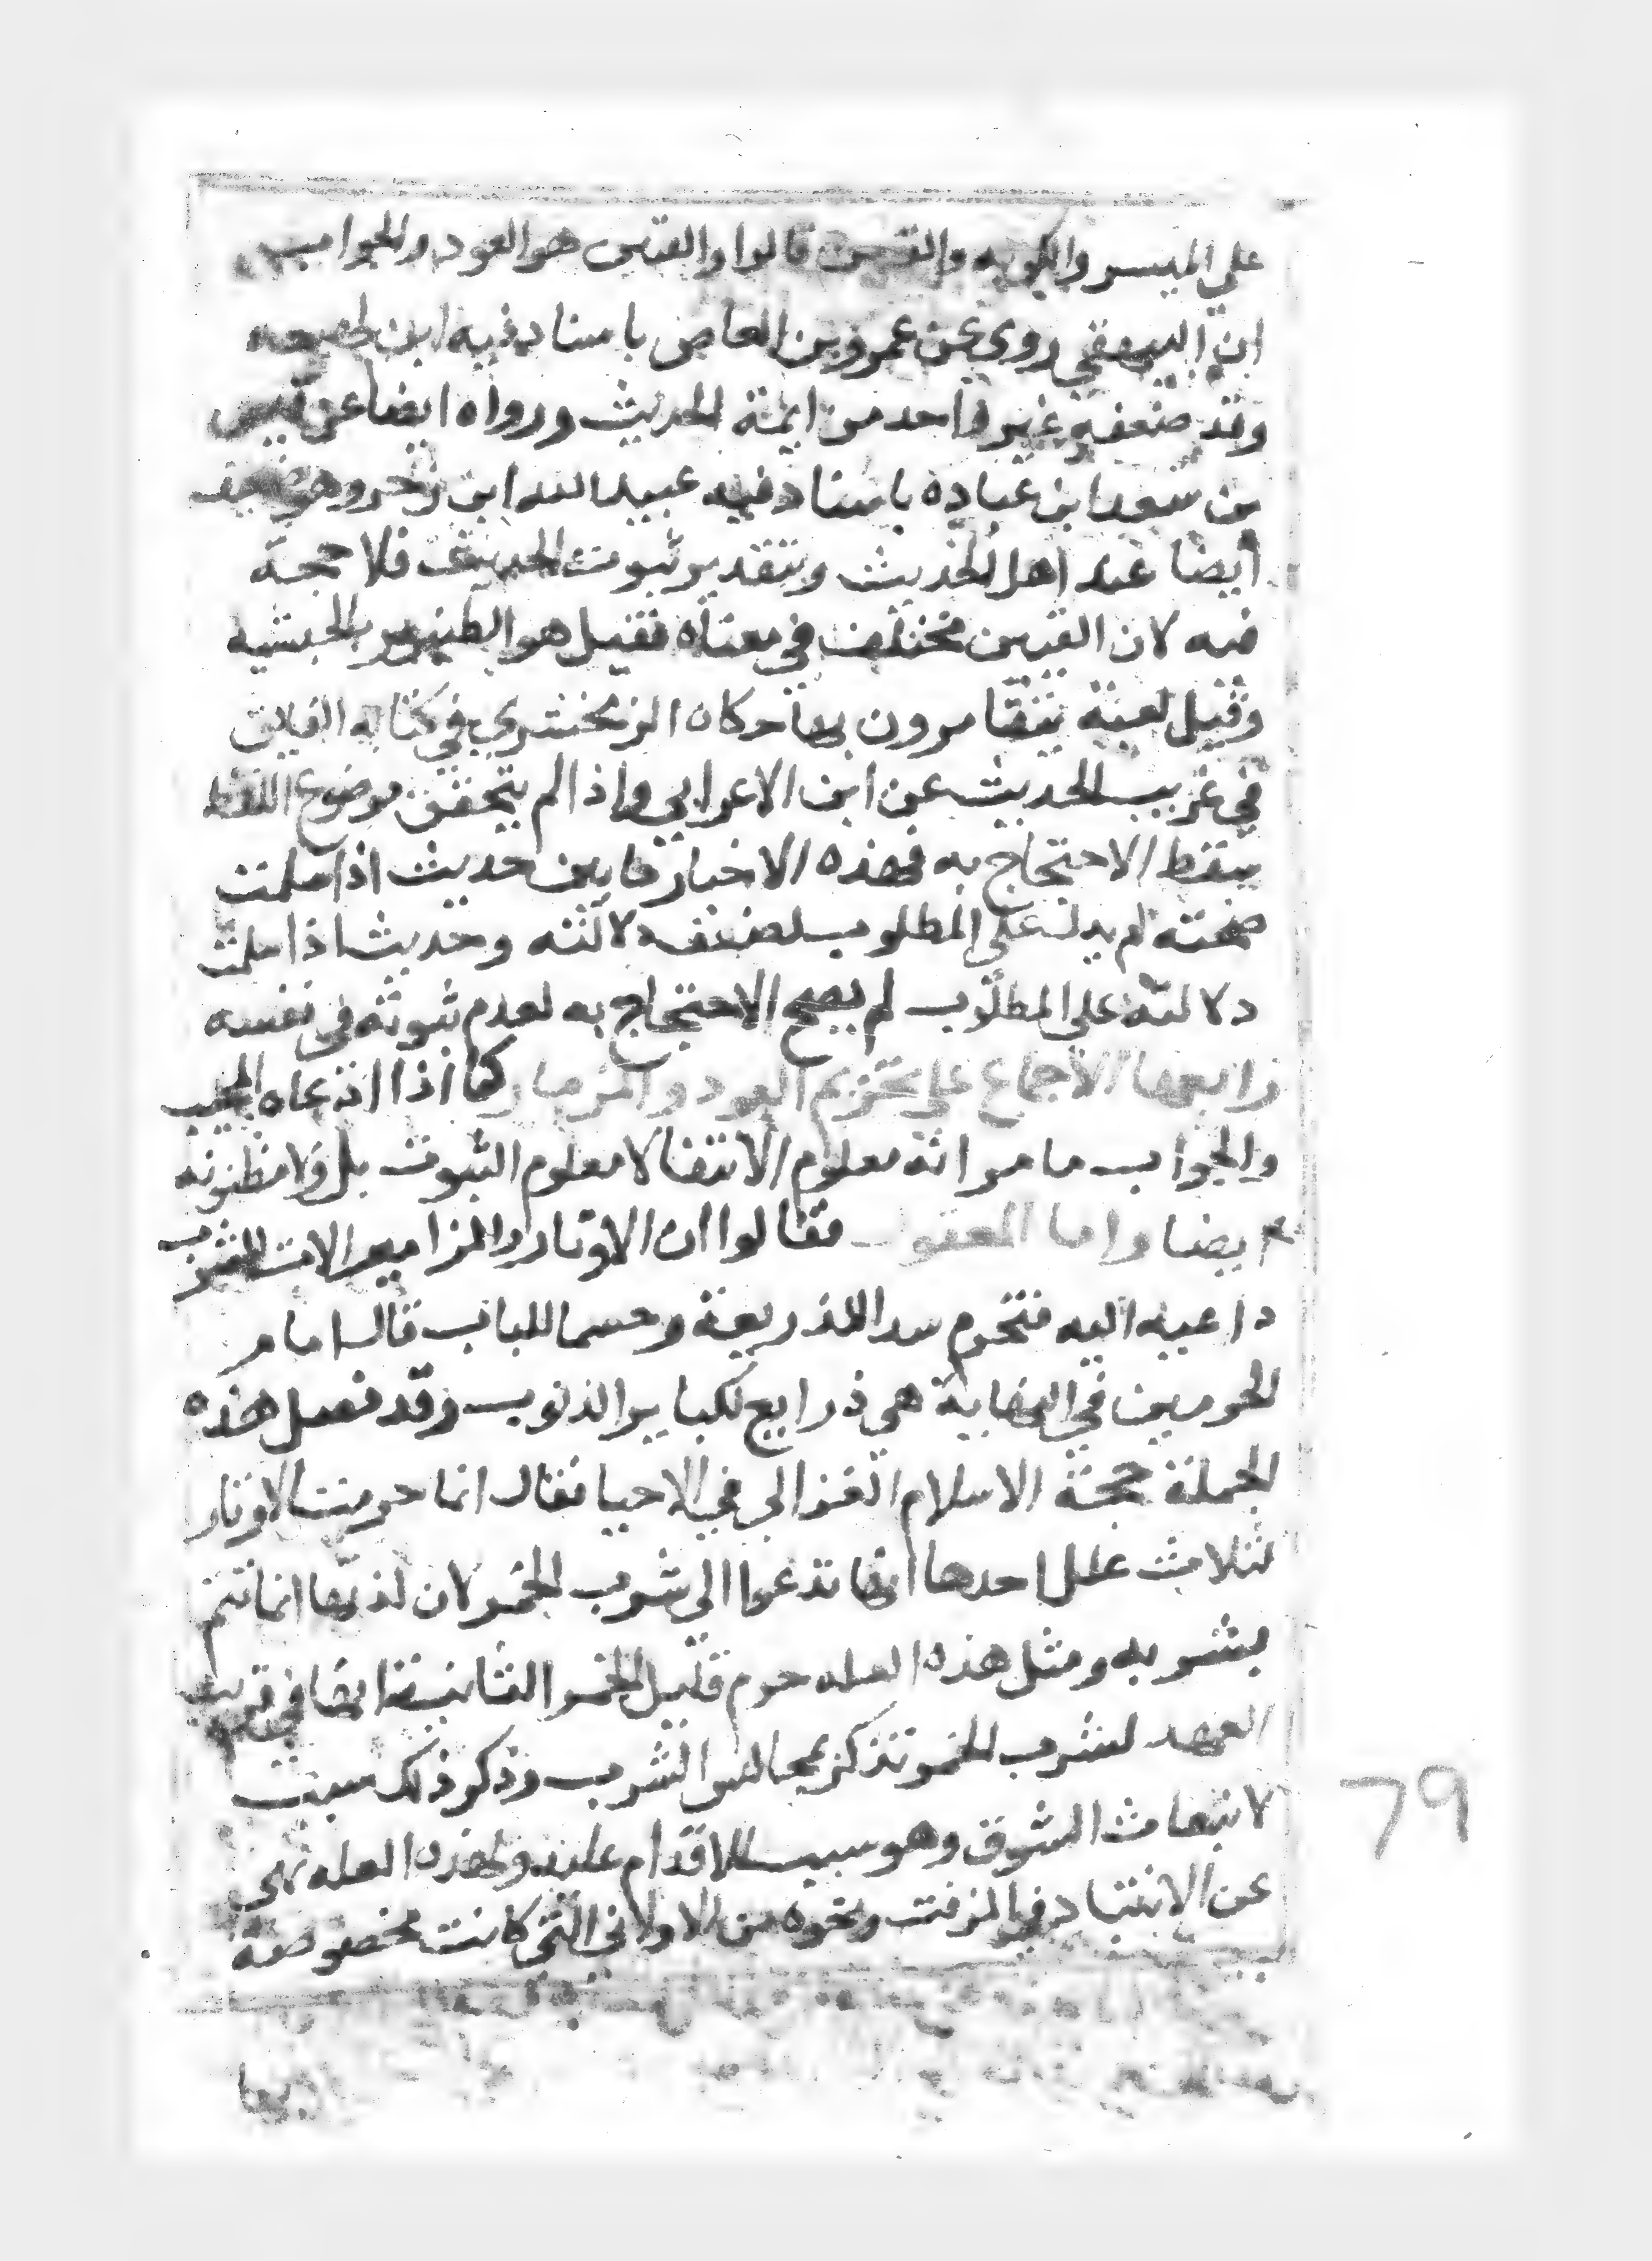 علي الميسر والكوبه والقنين قالوا والقنين هو العود والجواب
ان البيهقي روي عن عمرو بن العاص باسناد فيه ابن لهيعه
وقد ضعفه غير واحد من ايمة الحديث ورواه ايضا عن قيس
بن سعد ابن عباده باسناد فيه عبيد الله ابن زحر وهو ضعيف
ايضا عند اهل الحديث وبتقدير ثبوت الحديث فلا حجة
فيه لان القنين مختلف في معناه فقيل هو الطنبور بالحبشيه
وقيل لعبة يتقامرون بها حكاه الزمخشري في كتابه الفايق
في غريب الحديث عن ابن الاعرابي واذا لم يتحقق موضوع اللفظ
سقط الاحتجاج به فهذه الاخبار ما بين حديث اذا سلمت
صحته لم يدل علي المطلوب لضعف دلالته وحديث اذا سلمت
دلالته علي المطلوب لم يصح الاحتجاج به لعدم ثبوته في نفسه
رابعها الاجماع علي تحريم العود والمزمار كما اذا ادعاه المجيب
والجواب ما مر انه معلوم الانتفا لا معلوم الثبوت بل ولا مظنونه
ايضا واما المعقول فقالوا ان الاوتار والمزامير الات للشرب
داعيه اليه فتحرم سدا للذريعة وحسما للباب قال امام
الحرمين في النهاية هي ذرايع لكباير الذنوب وقد فصل هذه
الجملة حجة الاسلام الغزالي في الاحيا فقال انما حرمت الاوتار
لثلاث علل احدها انها تدعوا الي شرب الخمر لان لذتها انما تتم
بشربه ومثل هذه العله حرم قليل الخمر الثانية انها في قريب
العهد لشرب الخمر تذكر مجالس الشرب وذكر ذلك سبب
لانبعاث الشوق وهو سبب للاقدام عليه ولهذه العله نهي
عن الانتباد في المزفت ونحوه من الاواني التي كانت مخصوصة
بها
79